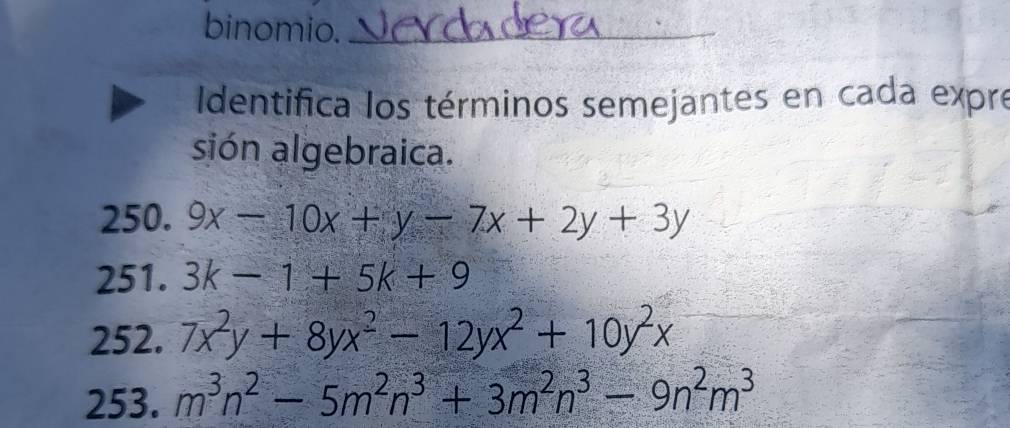 binomio. Verdadera
Identifica los términos semejantes en cada expre
sión algebraica.
250. 9x − 10x + y − 7x + 2y + 3y
251. 3k − 1 + 5k + 9
252. 7x²y + 8yx² − 12yx² + 10y²x
253. m³n² − 5m²n³ + 3m²n³ − 9n²m³